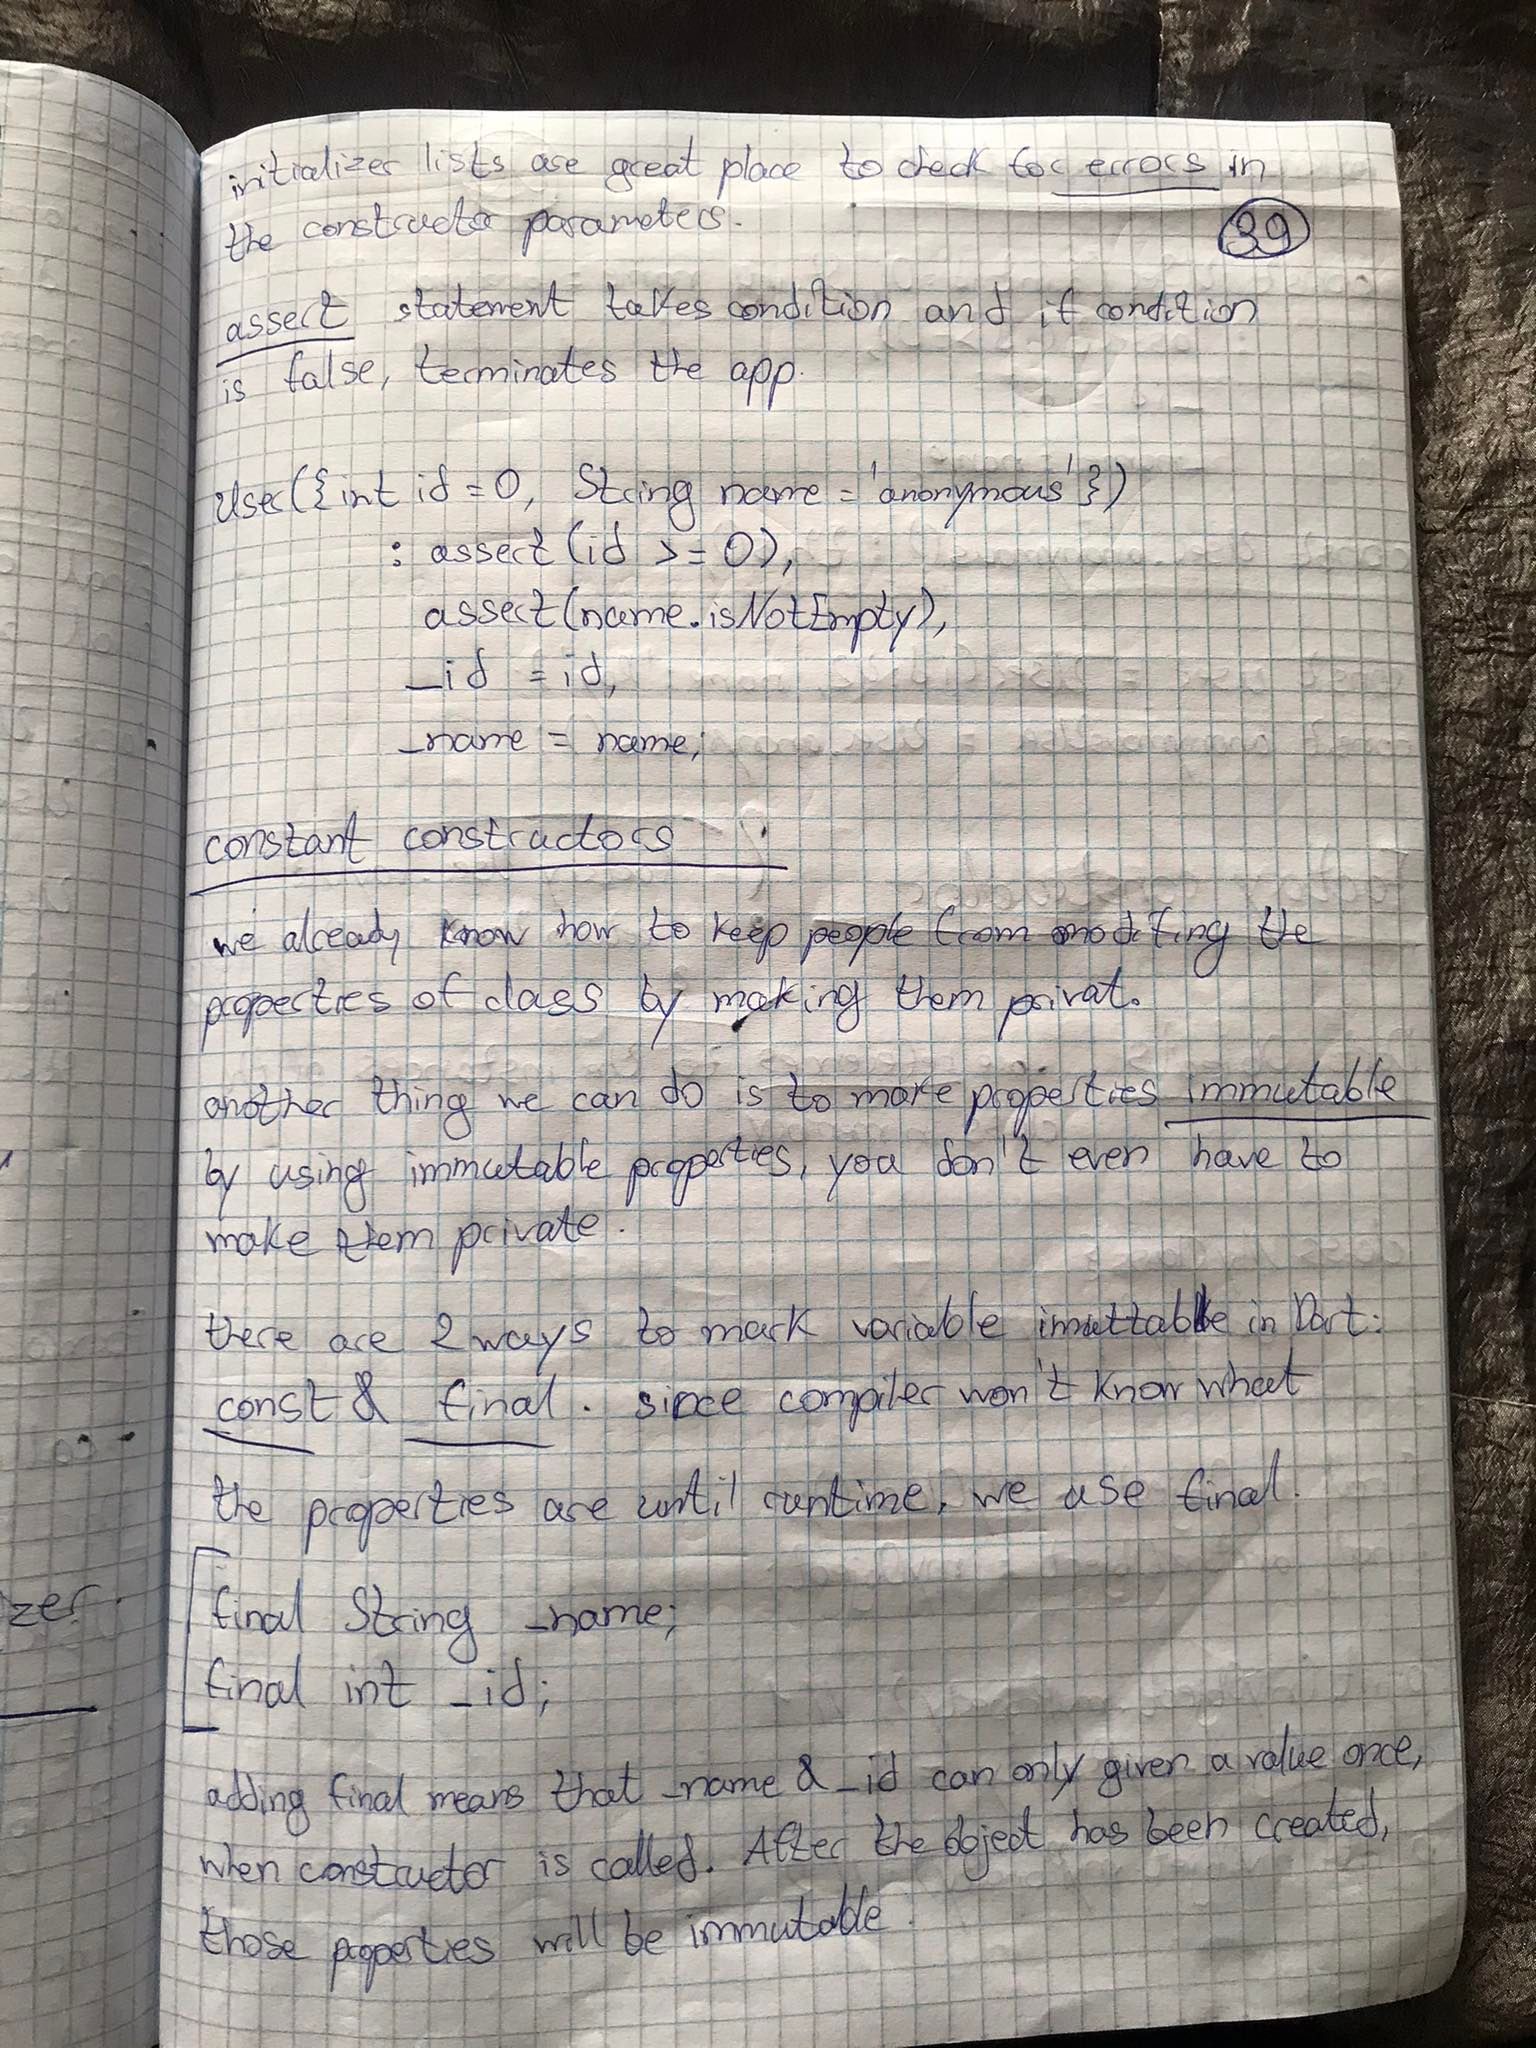 initializer lists are great place to check for errors in
the constructor parameters.
39
assert statement takes condition and if condition
is false, terminates the app.
User({int id = 0, String name = 'anonymous'})
: assert(id >= 0),
assert(name.isNotEmpty),
_id = id,
_name = name;
constant constractors
we already know how to keep people from modifing the
properties of class by making them privat.
another thing we can do is to make properties immutable
by using immutable properties, you don't even have to
make them private.
there are 2 ways to mark variable imuttable in Dart:
const & final. since compiler won't know what
the properties are until runtime, we use final.
final String _name;
final int _id;
zer.
adding final means that _name & _id can only given a value once,
when constructor is called. After the object has been created,
those properties will be immutable.